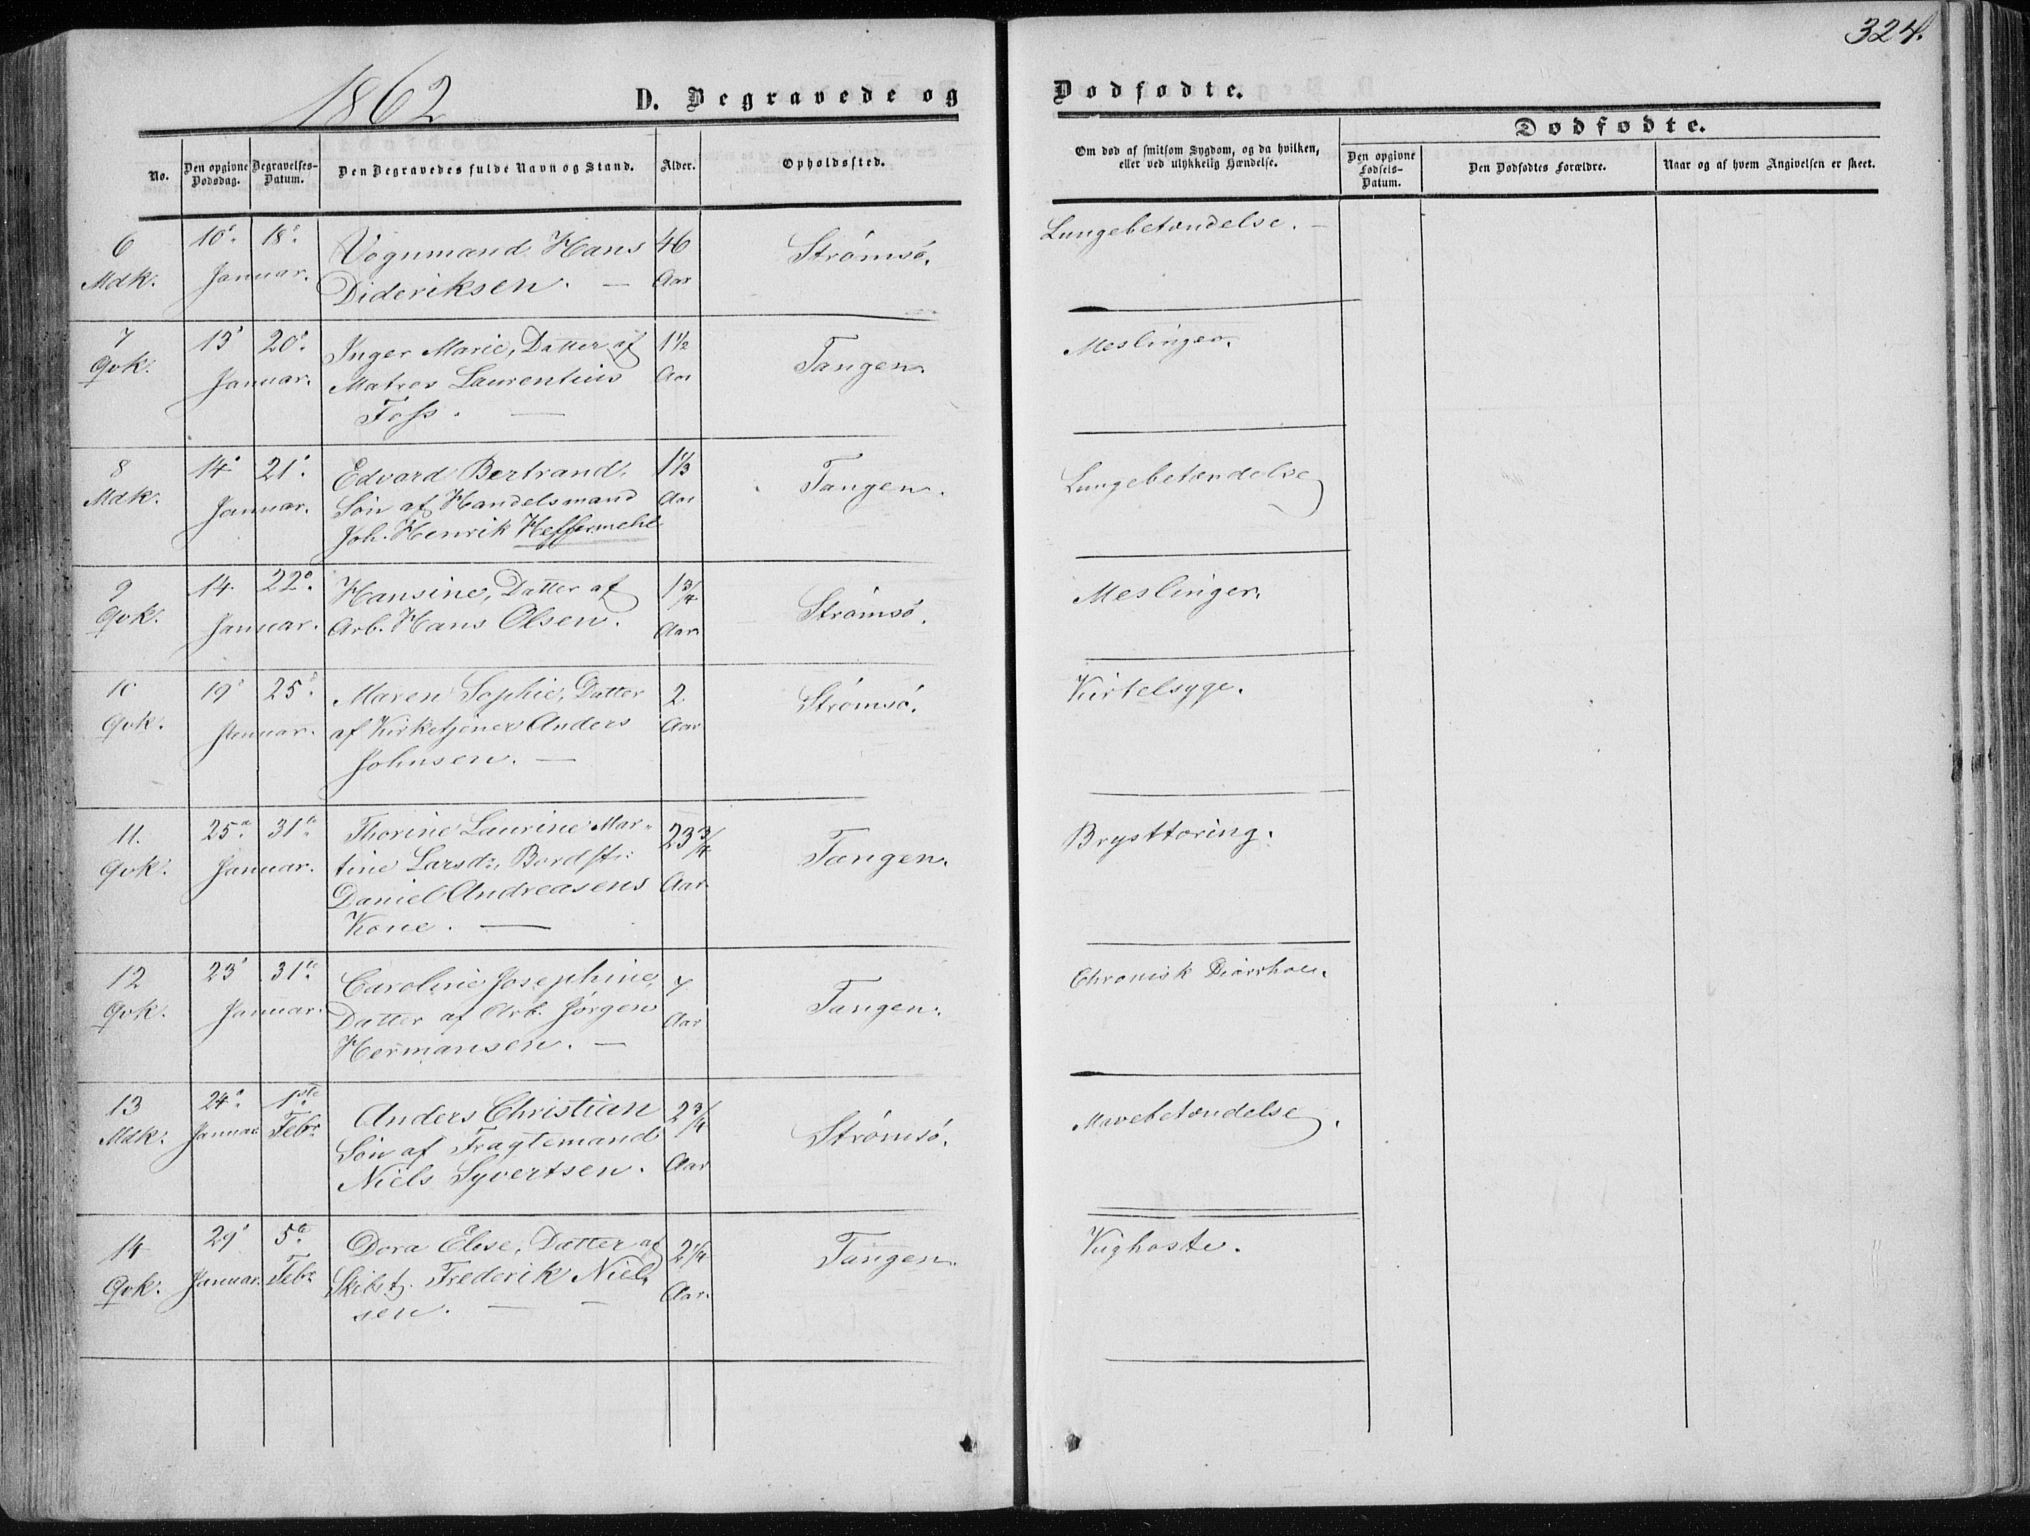 324.
1862
D. Begravede og
Dødfødte.
Dødfødte.
No.
Den opgivne Dødsdag.
Begravelses-Datum.
Den Begravedes fulde Navn og Stand.
Alder.
Opholdssted.
Om død af smitsom Sygdom, og da hvilken,
eller ved ulykkelig Hændelse.
Den opgivne Fødsels-Datum.
Den Dødfødtes Forældre.
Naar og af hvem Angivelsen er skeet.
6 10. 18. Vognmand Hans 46 Strømsø. Lungebetændelse.
Mdk. Januar. Dideriksen. Aar
7 13 20. Inger Marie, Datter af 1 1/2 Tangen. Meslinger.
Qvk. Januar. Matros Laurentius Aar
Foss.
8 14 21. Edvard Bertrand, 1 1/3 Tangen. Lungebetændelse
Mdk. Januar. Søn af Handelsmand Aar
Joh. Henrik Heffermehl
9 14. 22. Hansine, Datter af 1 3/4 Strømsø. Meslinger.
Qvk. Januar. Arb. Hans Olsen. Aar
10 19 25. Maren Sophie, Datter 2 Strømsø. Kirtelsyge.
Qvk. Januar. af Kirketjener Anders Aar
Johnsen.
11. 25. 31te Thorine Laurine Mar- 23 3/4 Tangen. Brysttæring.
Qvk. Januar. tine Larsd:, Bordst: Aar
Daniel Andreasens
Kone.
12 23 31te Caroline Josephine, 7 Tangen. Chronisk Diarrhoe.
Qvk. Januar. Datter af Arb. Jørgen Aar
Hermansen.
13 24. 1ste Anders Christian 2 3/4 Strømsø. Mavebetændelse.
Mdk. Januar Febr. Søn af Fragtemand Aar
Niels Syvertsen.
14 29 5te Dora Elise, Datter af 2 1/4 Tangen. Kighoste.
Qvk. Januar. Febr. Skibst. Frederik Niel- Aar.
sen.